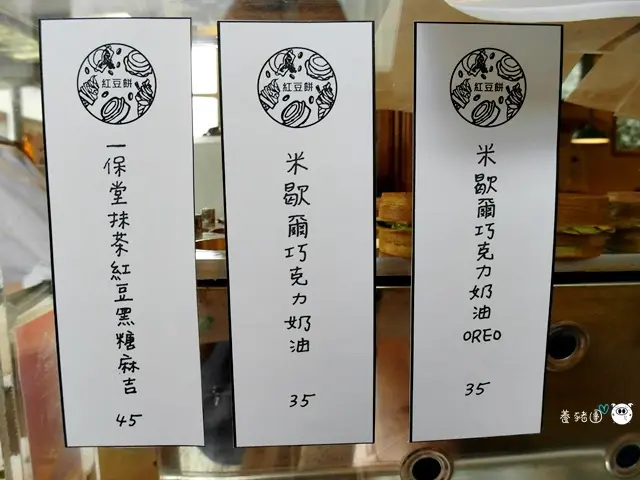 紅豆餅
一保堂抹茶紅豆黑糖麻吉
45
紅豆餅
米歇爾巧克力奶油
35
紅豆餅
米歇爾巧克力奶油OREO
35
養豬團